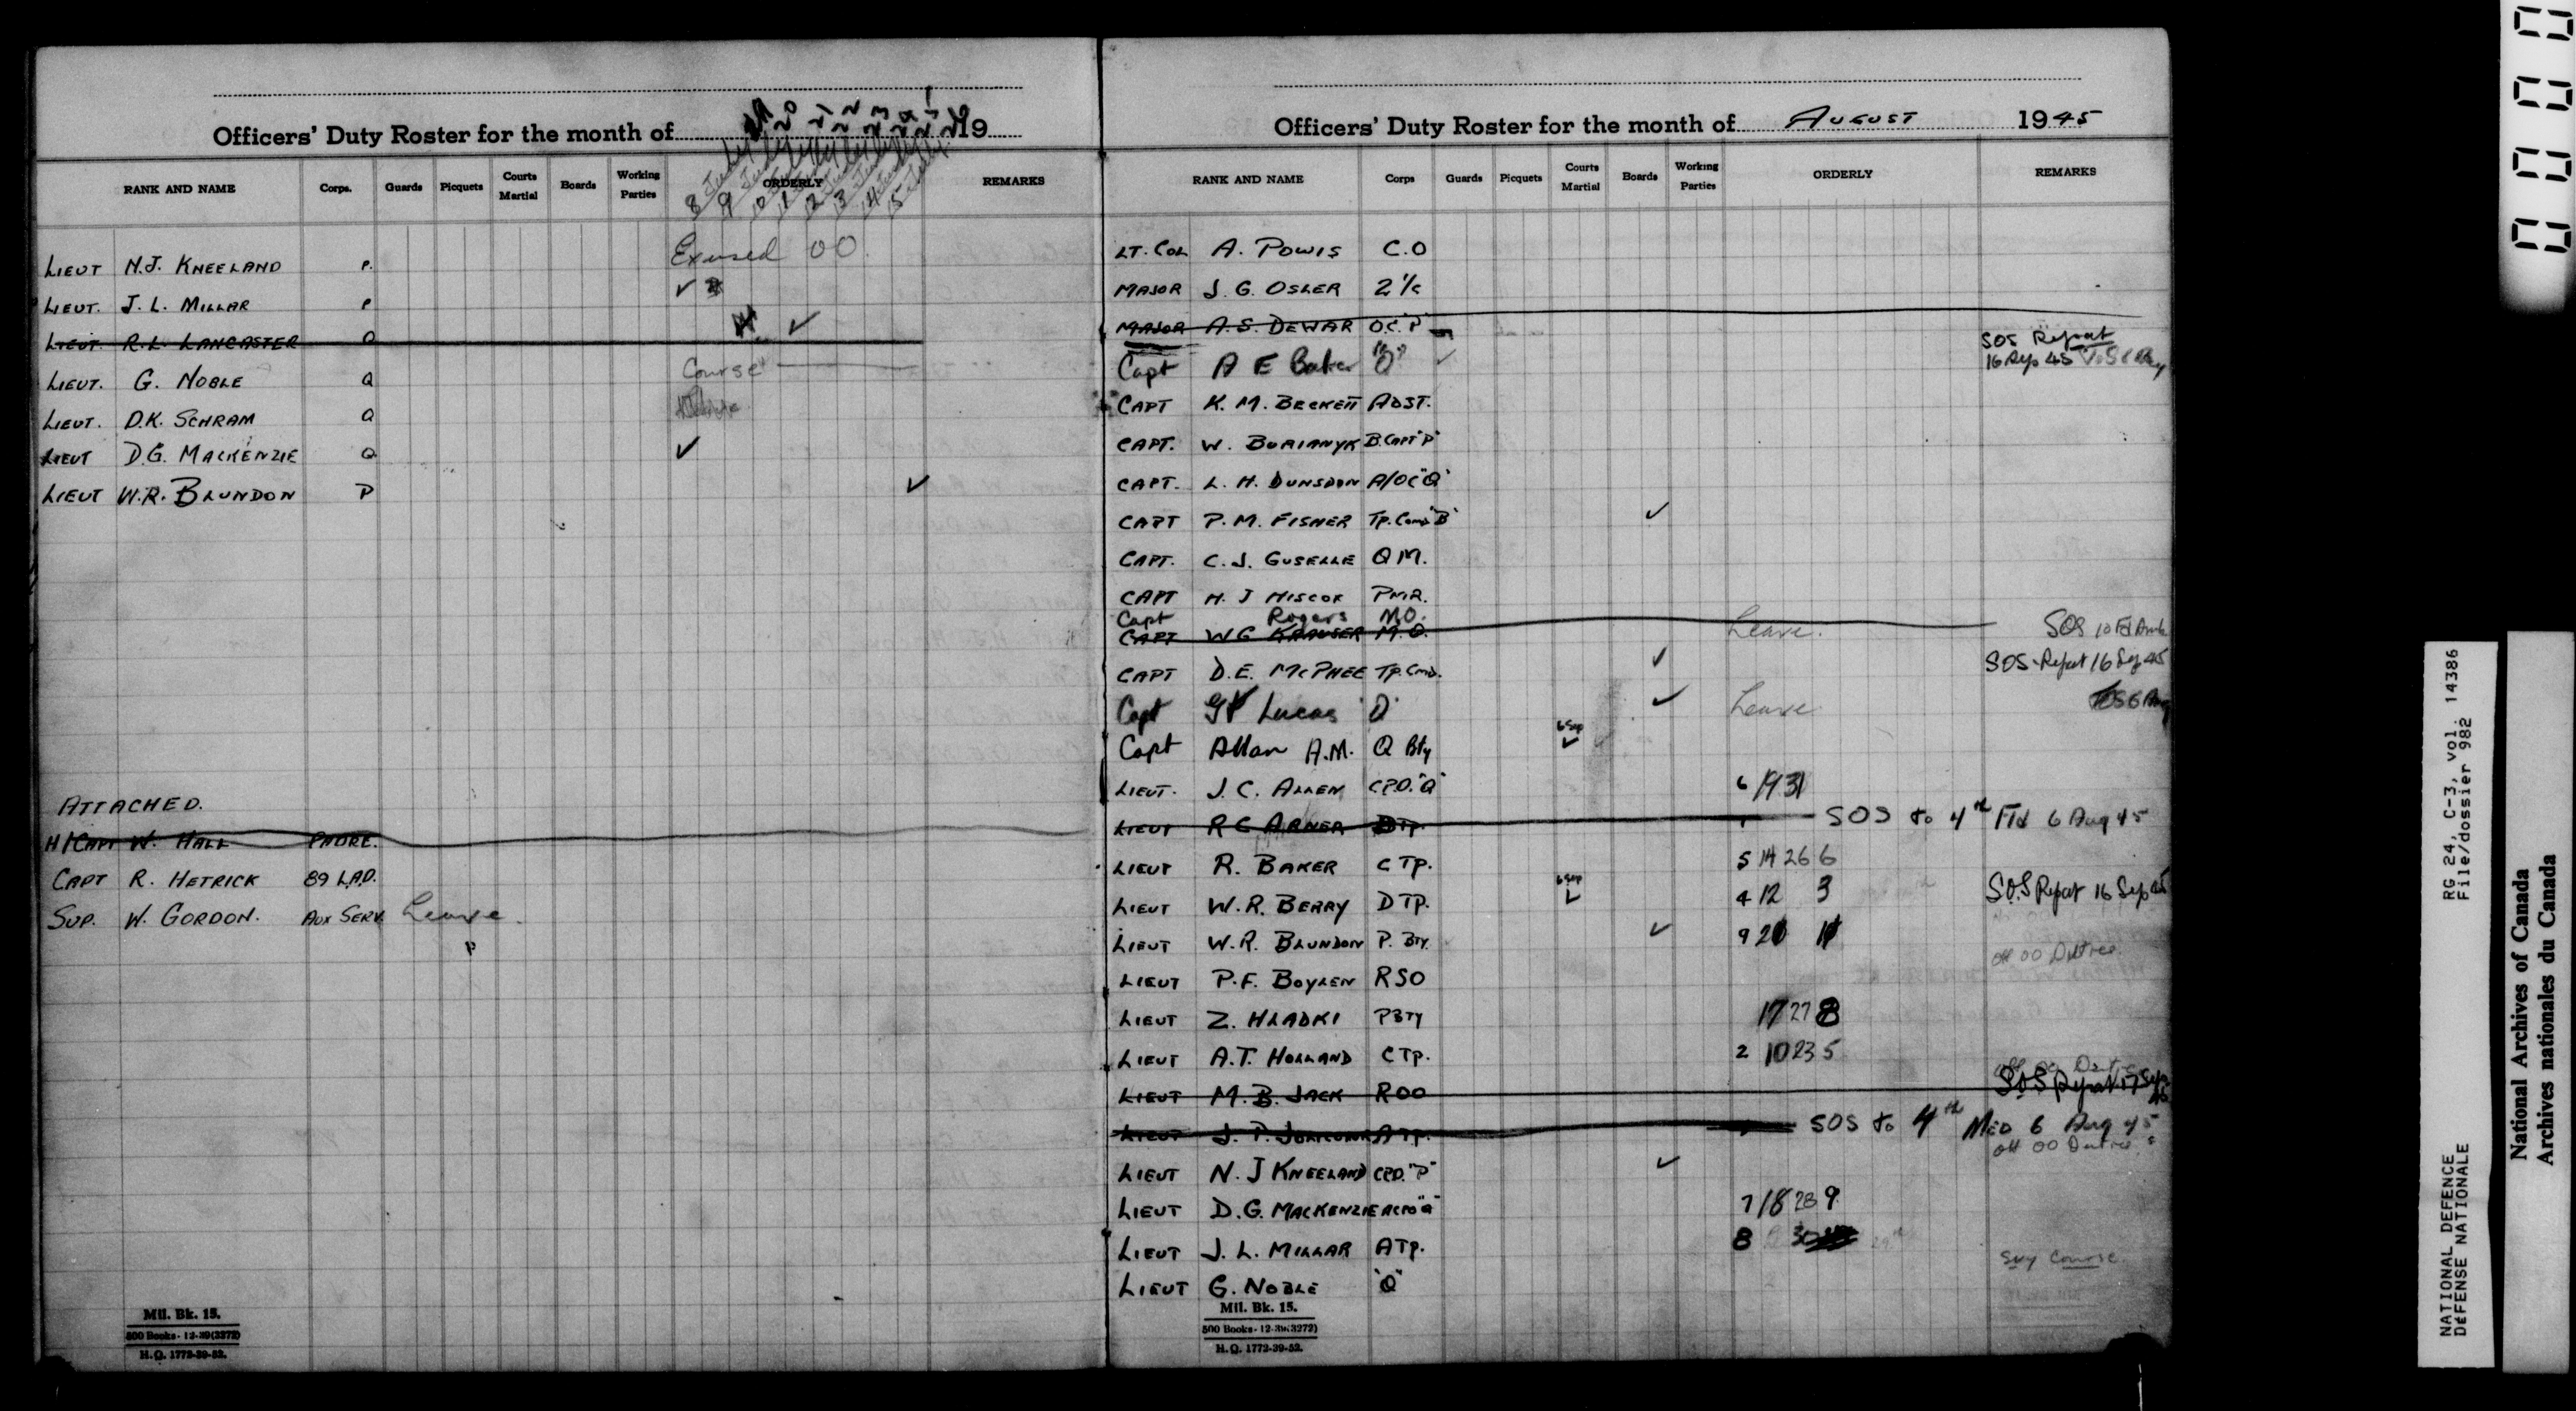 Officers' Duty Roster for the month of 19
RANK AND NAME Corps. Guards Picquets Courts Martial Boards Working Parties ORDERLY REMARKS
8 July 9 July 10 July 11 July 12 July 13 July 14 July 15 July
LIEUT N.J. KNEELAND P. Exused OO.
LIEUT. J. L. MILLAR P ✓
LIEUT. R.L. LANCASTER Q ✓
LIEUT. G. NOBLE Q Course
LIEUT. D.K. SCHRAM Q
LIEUT D.G. MACKENZIE Q ✓
LIEUT W.R. BRUNDON P ✓
ATTACHED.
H/CAPT W. HALL PADRE.
CAPT R. HETRICK 89 L.A.D.
SUP. W. GORDON. AUX SERV. Leave.
P
Mil. Bk. 15.
500 Books-12-39(3272)
H.Q. 1772-39-52.
Officers' Duty Roster for the month of AUGUST 1945
RANK AND NAME Corps Guards Picquets Courts Martial Boards Working Parties ORDERLY REMARKS
LT. COL A. POWIS C.O
MAJOR J. G. OSLER 2 I/C
MAJOR A.S. DEWAR O.C. "P" SOS Repat
Capt A E Baker "Q" ✓ 16 Sep 45
CAPT K. M. BECKETT ADJT.
CAPT. W. BURIANYK B.CAPT "P"
CAPT. L. H. DUNSDON A/OC "Q"
CAPT P. M. FISHER Tp. Comd "B" ✓
CAPT. C. J. GUSELLE QM.
CAPT H. J HISCOX PMR.
Capt Rogers MO.
CAPT W G KRAUSER M.O. Leave. SOS 10 Fd Amb
CAPT D. E. MCPHEE Tp. Cmd. ✓ SOS Repat 16 Sep 45
Capt GP Lucas Q ✓ Leave TOS 6 Aug
Capt Allan A.M. Q Bty 6 Sep ✓
LIEUT. J. C. ALLEN C.P.O. "Q" 6 19 31
LIEUT R G ARNER B TP. SOS to 4th Fld 6 Aug 45
LIEUT R. BAKER C Tp. 5 14 26 6
LIEUT W.R. BERRY D Tp. 6 Sep ✓ 4 12 3 S.O.S Repat 16 Sep 45
LIEUT W.R. BRUNDON P. BTY. ✓ 9 20 11
LIEUT P.F. BOYLEN RSO off OO Duties.
LIEUT Z. HLADKI P BTY 17 27 8
LIEUT A.T. HOLLAND C Tp. 2 10 23 5
LIEUT M. B. JACK ROO SOS Repat 17 Sep 45
LIEUT J. P. A Tp. SOS to 4th MED 6 Aug 45
LIEUT N. J KNEELAND C.P.O. "P" ✓ off OO Duties
LIEUT D. G. MACKENZIE ACPO "Q" 7 18 28 9
LIEUT J. L. MILLAR A Tp. 8 30
LIEUT G. NOBLE "Q" Svy Course
Mil. Bk. 15.
500 Books-12-39(3272)
H.Q. 1772-39-52.
NATIONAL DEFENCE RG 24, C-3, vol. 14386
DÉFENSE NATIONALE File/dossier 982
National Archives of Canada
Archives nationales du Canada
0000